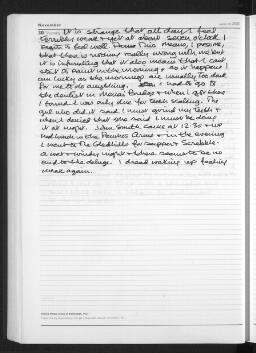 November
It is strange that all day I feel
terribly weak & yet at about seven o'clock I
begin to feel well. This means, I presume,
that there is nothing really wrong with me but
it is infuriating that it also means that I can't
start to paint in the morning & as it happens I
am lucky as the mornings are usually too dark
for me to do anything. I had to go to
the dentist in Menai Bridge & when I got there
I found I was only due for teeth scaling. The
girl who did it said I must grind my teeth &
when I denied that she said I must be doing
it at night. John Smith came at 12.30 & we
had lunch in the Penrhos Arms & in the evening
I went to The Gledhills for supper & Scrabble.
A wet & windy night & there seems to be no
end to the deluge. I dread waking up feeling
weak again.